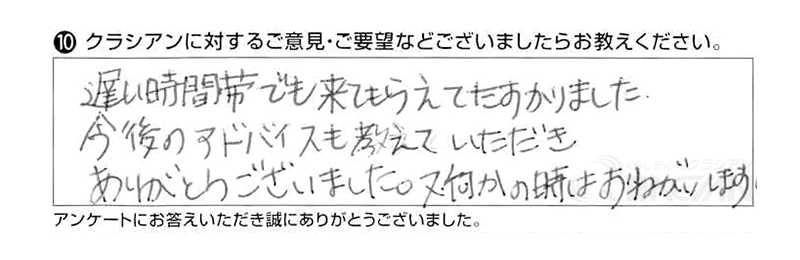 ❿ クラシアンに対するご意見・ご要望などございましたらお教えください。
遅い時間帯でも来てもらえてたすかりました.
今後のアドバイスも教えていただき
ありがとうございました。又何かの時はおねがいします
アンケートにお答えいただき誠にありがとうございました。